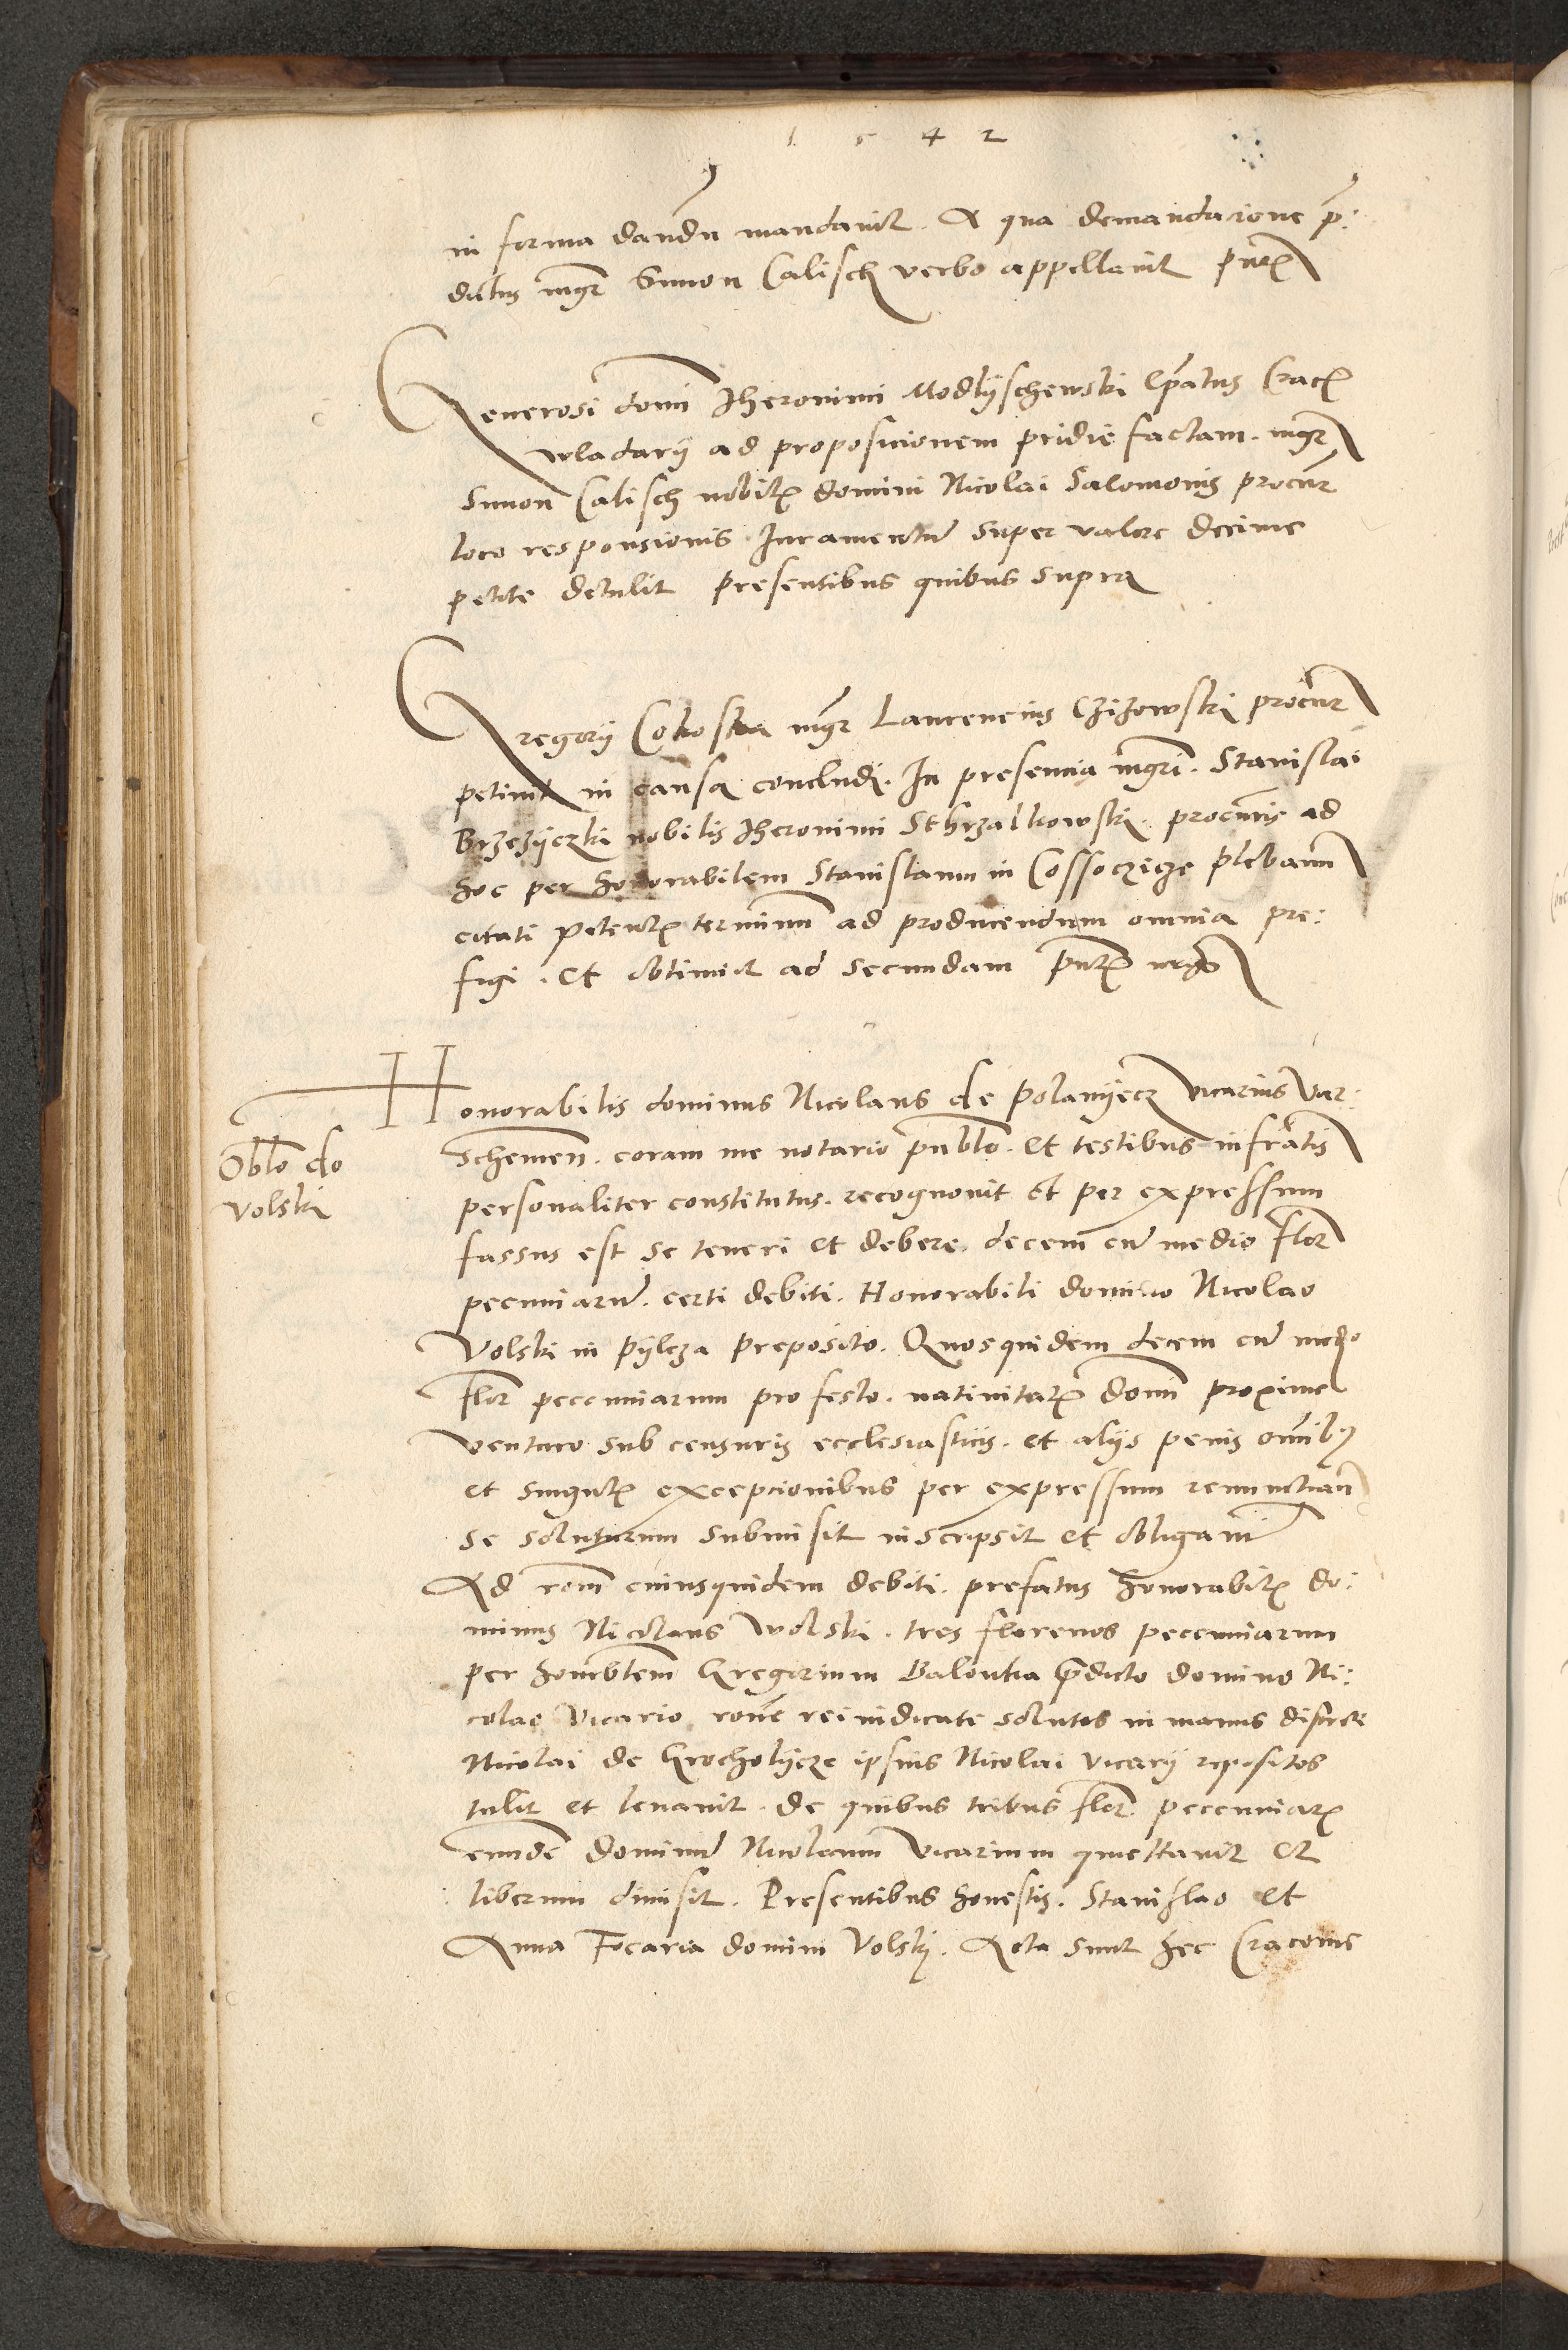 1542
in forma dandu mandavit. A qua demandacione p̄:
dictus mgr̄ Simon Calisch verbo appellavit pn̄t
Generosi domi Iheronimi Modlyschewski Ep̄atus Crac
wladarij ad proposicionem pridie factam. mgr̄
Simon Calisch nobil domini Nicolai Salomonis procur
loco responsionis Iuramentū super valore decime
petite detulit presentibus quibus supra
Gregorij Coboska mgr̄ Laurencius Czizowski procur
petivit in causa concludi. In presencia mgri. Stanislai
Brzezyczki nobilis Iheronimi Sthrzalkowski procuris ad
hoc per honorabilem Stanislaum in Cossoczicze plebanū
citati petent terminū ad producendum omnia pre:
figi. et obtinuit ad secundam pn̄t
Honorabilis dominus Nicolaus de Polanyecz vicarius Var:
schewien. coram me notario publo. et testibus infratis
Oblo do
Volski
personaliter constitutus. recognovit et per expressum
fassus est se teneri et debere. decem cū medio flor
pecuniarū. certi debiti. Honorabili domino Nicolao
Volski in Pylcza preposito. Quosquidem decem cū medio
flor peccuniarum pro festo. nativitatis domi proxime
venturo sub censuris ecclesiasticis. et alijs penis omib9
et singul excepcionibus per expressum renunctian
se soluturum submisit inscripsit et obligavit
Ad rom cuiusquidem debiti. prefatus honorabil do:
minus Nicolaus Wolski. tres florenos peccuniarum
per honorblem Gregorium Balonka p̄dicto domino Ni:
colao vicario rone rei iudicate solutos in manus discrete
Nicolai de Grocholycze ipsius Nicolai vicarij repositos
tulit et levavit. de quibus tribus flor peccuniar
eundē dominū Nicolaum vicarium quiettavit et
liberum dimisit. Presentibus honestis. Stanislao et
Anna Focaria domini Volski. Acta sunt hec Cracovie